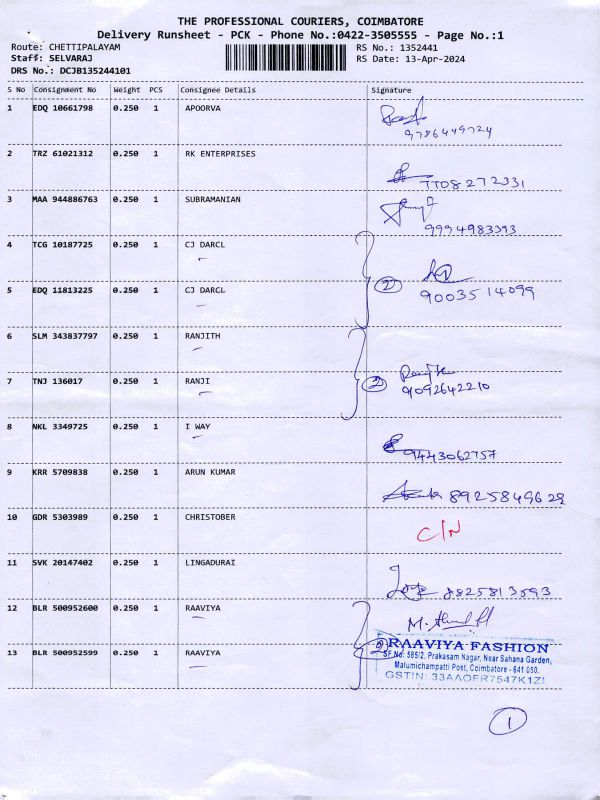 THE PROFESSIONAL COURIERS, COIMBATORE
Delivery Runsheet - PCK - Phone No.:0422-3505555 - Page No.:1
Route: CHETTIPALAYAM RS No.: 1352441
Staff: SELVARAJ RS Date: 13-Apr-2024
DRS No.: DCJB135244101
S No Consignment No Weight PCS Consignee Details Signature
1 EDQ 10661798 0.250 1 APOORVA
9786449724
2 TRZ 61021312 0.250 1 RK ENTERPRISES
7708272331
3 MAA 944886763 0.250 1 SUBRAMANIAN
9994983393
4 TCG 10187725 0.250 1 CJ DARCL
5 EDQ 11813225 0.250 1 CJ DARCL 2
9003514099
6 SLM 343837797 0.250 1 RANJITH
7 TNJ 136017 0.250 1 RANJI 2
9092642210
8 NKL 3349725 0.250 1 I WAY
9443062757
9 KRR 5709838 0.250 1 ARUN KUMAR
8925849629
10 GDR 5303989 0.250 1 CHRISTOBER
C/N
11 SVK 20147402 0.250 1 LINGADURAI
8825813593
12 BLR 500952600 0.250 1 RAAVIYA
13 BLR 500952599 0.250 1 RAAVIYA 2
RAAVIYA FASHION
SF No: 585/2, Prakasam Nagar, Near Sahana Garden,
Malumichampatti Post, Coimbatore - 641 050.
GSTIN: 33AAOFR7547K1ZL
1